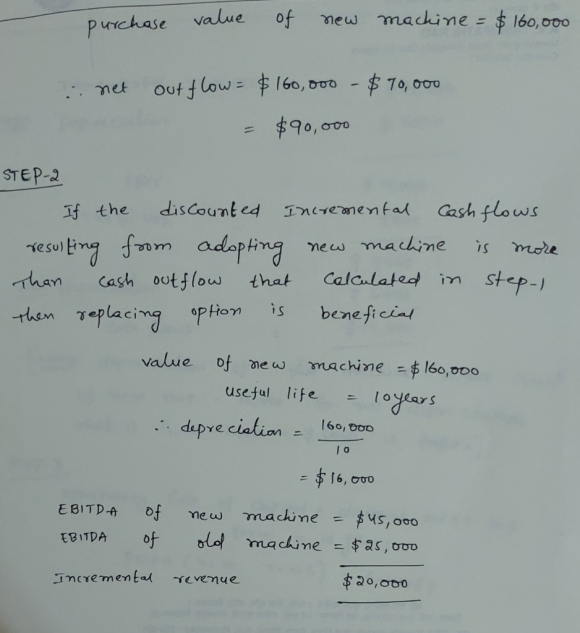 purchase value of new machine = $160,000
∴ net outflow = $160,000 - $70,000
= $90,000
STEP-2
If the discounted Incremental cash flows
resulting from adopting new machine is more
than cash outflow that calculated in step-1
then replacing option is beneficial
value of new machine = $160,000
useful life = 10 years
∴ depreciation = 160,000
10
= $16,000
EBITDA of new machine = $45,000
EBITDA of old machine = $25,000
Incremental revenue $20,000